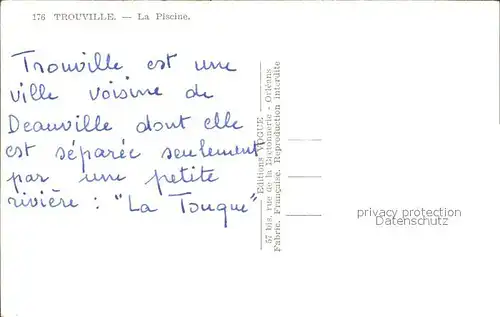 176 TROUVILLE. — La Piscine.
Trouville est une
ville voisine de
Deauville dont elle
est séparée seulement
par une petite
rivière : "La Touque"
57 bis, rue de la Bretonnerie - Orléans
Fabric. Française. Reproduction interdite
privacy protection
Datenschutz